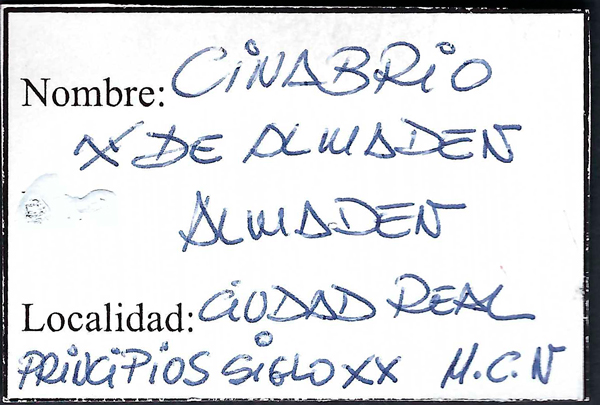 Nombre: CINABRIO
X DE ALMADEN
ALMADEN
Localidad: CIUDAD REAL
PRINCIPIOS SIGLO XX M.C.N